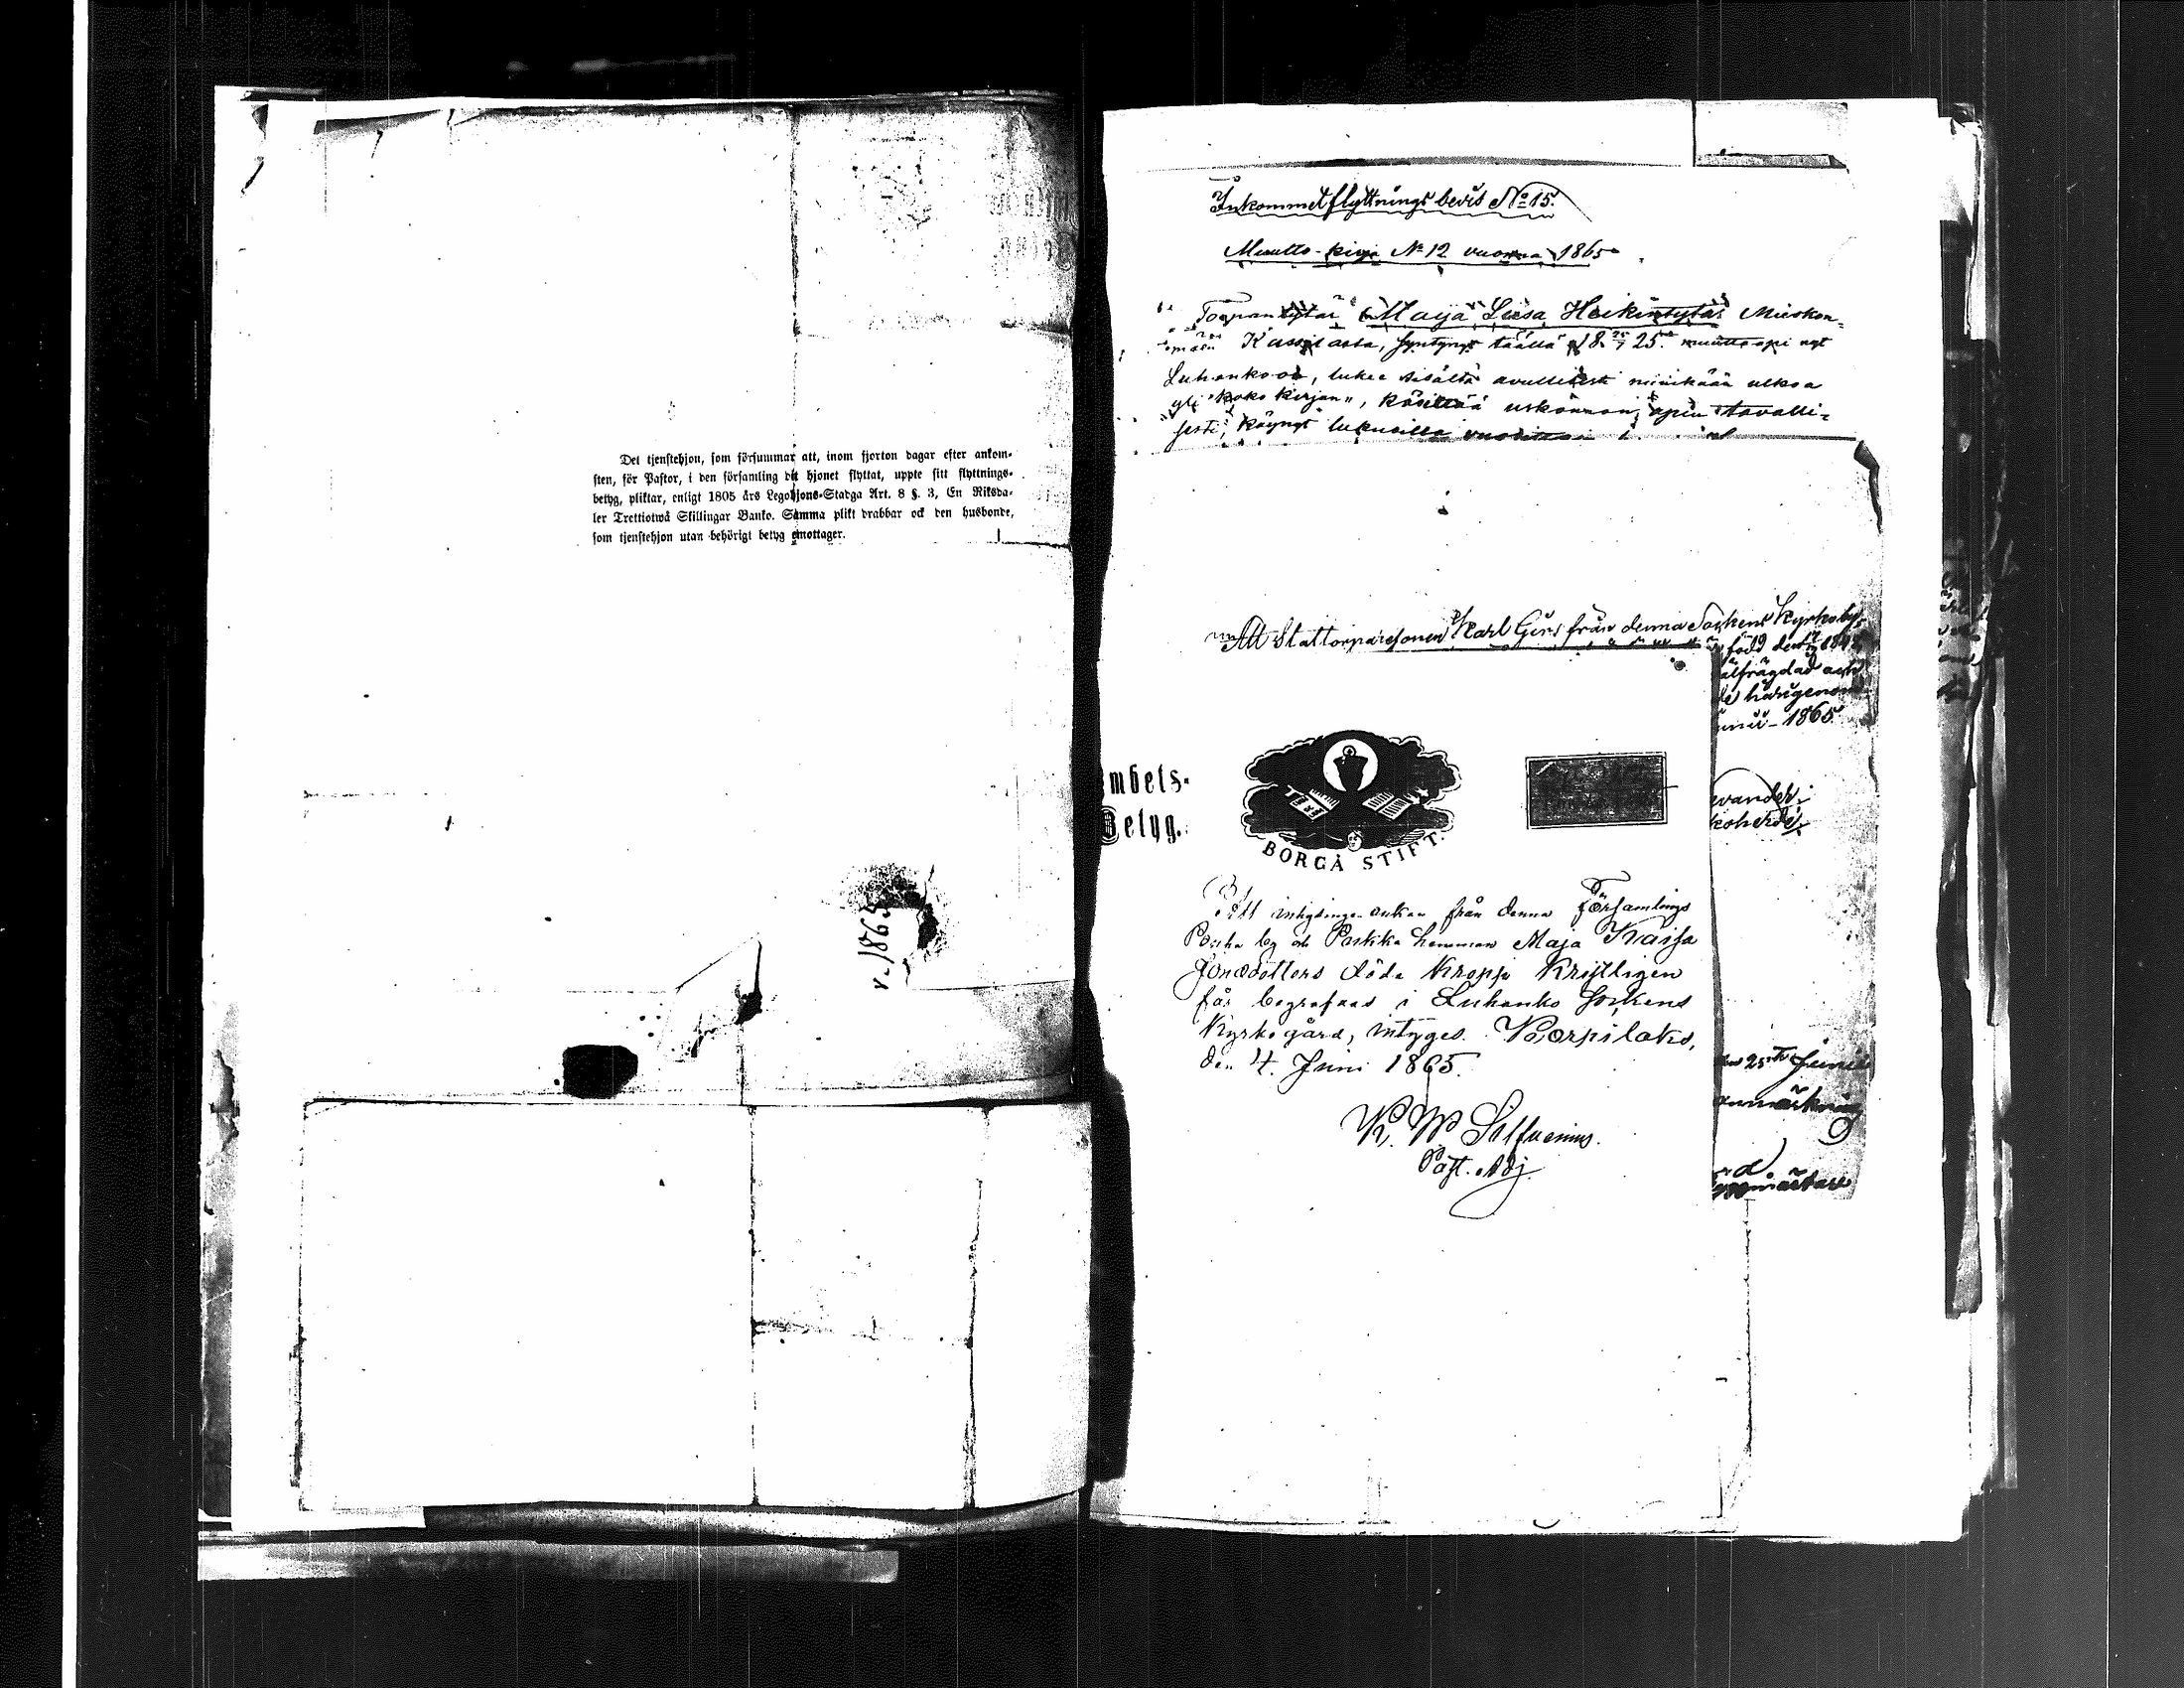 Det tjenstehjon, som försummar att, inom fjorton dagar efter ankom-
sten, för Pastor, i den församling dit hjonet flyttat, uppte sitt flyttnings-
betyg, pliktar, enligt 1805 års Legohjons-Stadga Art. 8 §. 3, En Riksda-
ler Trettiotwå Skillingar Banko. Samma plikt drabbar ock den husbonde,
som tjenstehjon utan behörigt betyg emottager.
v. 1865
Inkommet flyttnings bevis No 15.
Muutto-kirja No 12 vuonna 1865
Torpantytär Maija Liisa Heikintytär Mieskon-
mäen Kassilasta, syntynyt täällä 18 25 muuttaapi nyt
Luhankoon, lukee sisältä avullisesti niinikään ulkoa
yli "koko kirjan", käsittää uskonnon opin tavalli-
sesti, käynyt lukusilla
Att Stattorparesonen Karl Gers från denna Sockens Kyrkoby,
född den 184
älfrägdad och
härigenom
1865
vander
koherde
embets-
Betyg.
BORGÅ STIFT.
Att inhysinge enkan från denna Församlings
by och hemman Maja Kaisa
Jonasdotters döda Kropp Kristligen
får begrafvas i Luhanko Sockens
Kyrkogård, intyges. Korpilaks,
den 4. Juni 1865.
K. W.
Past. Adj.
25 Junii
anmärkning